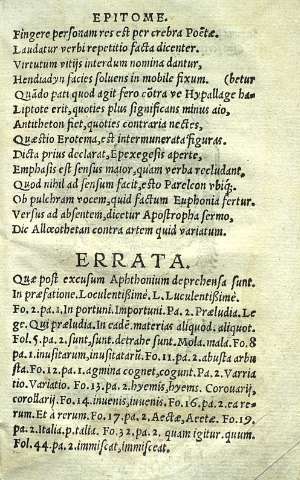 EPITOME.
Fingere personam res est per crebra Poëtæ.
Laudatur verbi repetitio facta dicenter.
Virtutum vitijs interdum nomina dantur,
Hendiadyn facies soluens in mobile fixum. (betur
Quãdo pati quod agit fero cõtra ve Hypallage ha-
Liptote erit, quoties plus significans minus aio,
Antitheton fiet, quoties contraria nectes,
Quæstio Erotema, est intermunerata figuras.
Dicta prius declarat, Epexegesis aperte,
Emphasis est sensus maior, quam verba recludant,
Quod nihil ad sensum facit, esto Parelcon vbiq;.
Ob pulchram vocem, quid factum Euphonia fertur.
Versus ad absentem, dicetur Apostropha sermo,
Dic Allœothetan contra artem quid variatum.
ERRATA.
Quæ post excusum Aphthonium deprehensa sunt.
In præfatione. Loculentißimè. L. Luculentißimè.
Fo. 2. pa. 1. In portuni. Importuni. Pa. 2. Præludia. Le
ge. Qui præludia. In cadē. materias aliquod. aliquot.
Fol. 5. pa. 2. sunt, sunt. detrahe sunt. Mola. mala. Fo. 8
pa. 1. inusitarum, inusitatarũ. Fo. 11. pa. 2. abusta arbu
sta. Fo. 12. pa. 1. agmina cognet, cogunt. Pa. 2. Varria
tio. Variatio. Fo. 13. pa. 2. hyemis, hyems. Corouarij,
corollarij. Fo. 14. inuenis, iuuenis. Fo. 16. pa. 2. ea re-
rum. Et a rerum. Fo. 17. pa. 2. Aectæ, Acetæ. Fo. 19.
pa. 2. Italia. p. talia. Fo. 32. pa. 2. quam igitur. quum.
Fol. 44. pa. 2. immiscat, immisceat.